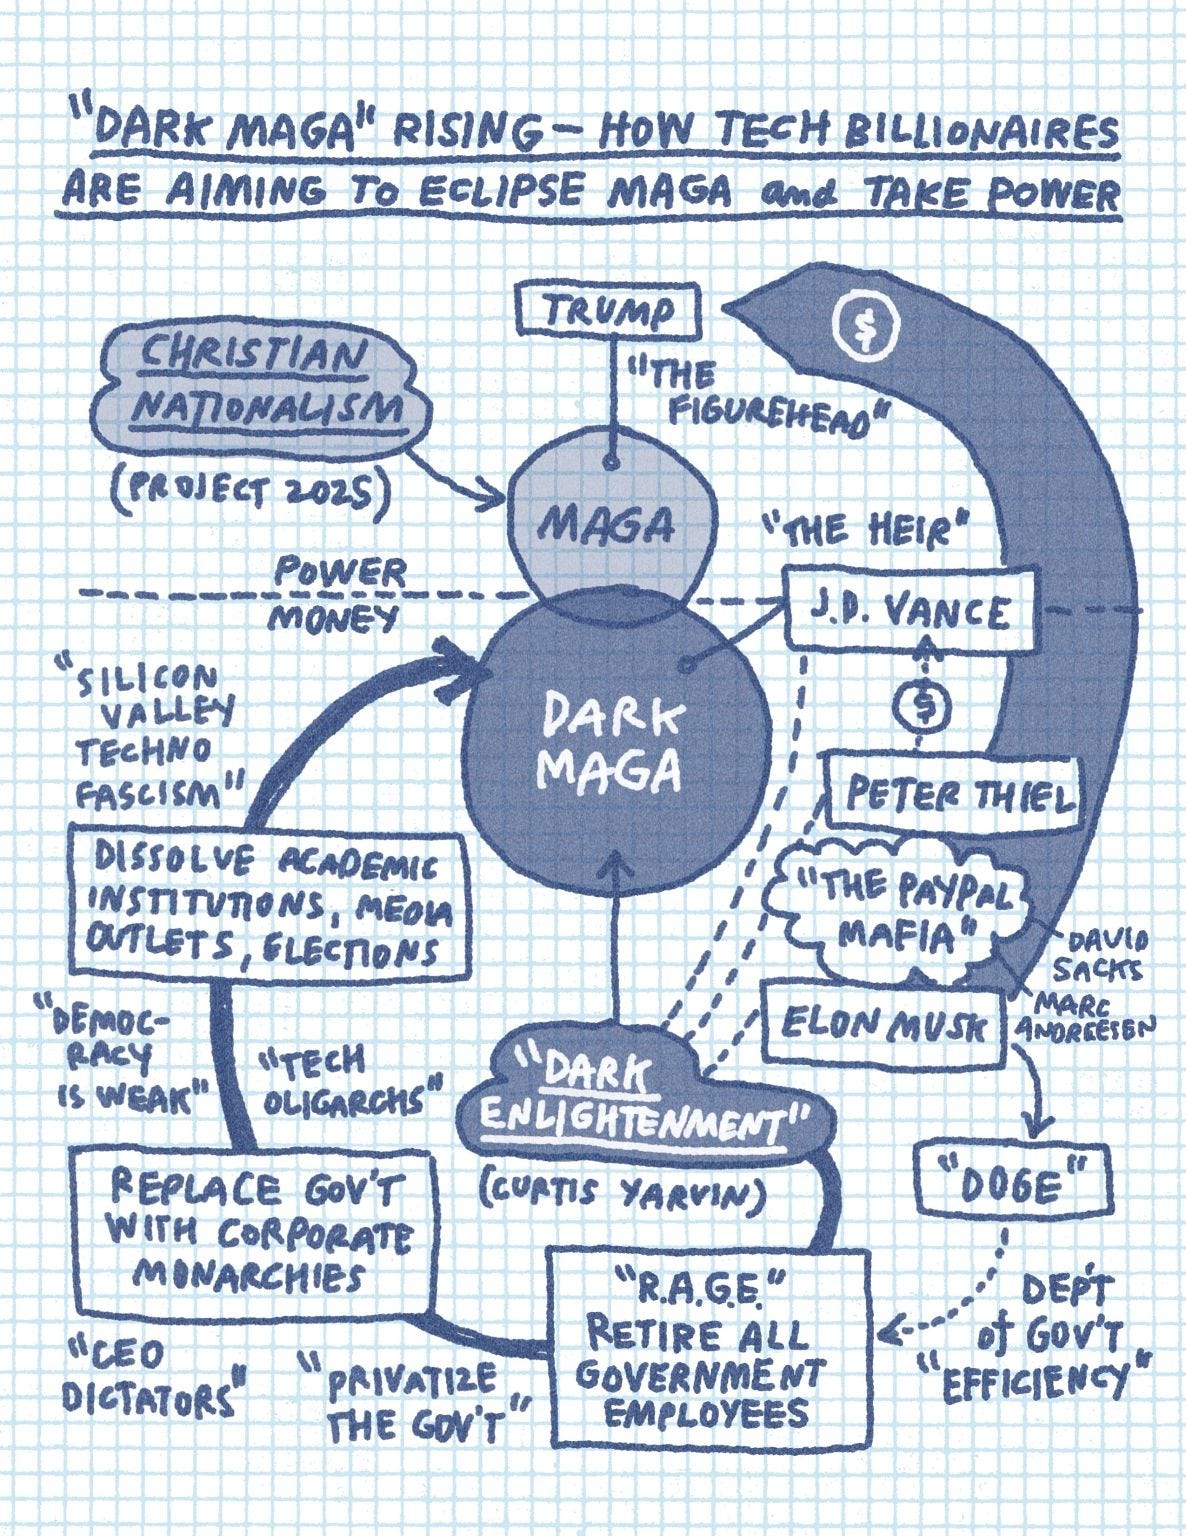 "DARK MAGA" RISING — HOW TECH BILLIONAIRES
ARE AIMING TO ECLIPSE MAGA and TAKE POWER
TRUMP
"THE
FIGUREHEAD"
$
CHRISTIAN
NATIONALISM
(PROJECT 2025)
MAGA
"THE HEIR"
J.D. VANCE
POWER
MONEY
$
PETER THIEL
"THE PAYPAL
MAFIA"
DAVID
SACKS
MARC
ANDREESEN
ELON MUSK
DARK
MAGA
"SILICON
VALLEY
TECHNO
FASCISM"
DISSOLVE ACADEMIC
INSTITUTIONS, MEDIA
OUTLETS, ELECTIONS
"DEMOC-
RACY
IS WEAK"
"TECH
OLIGARCHS"
"DARK
ENLIGHTENMENT"
(CURTIS YARVIN)
"DOGE"
DEP'T
of GOV'T
"EFFICIENCY"
REPLACE GOV'T
WITH CORPORATE
MONARCHIES
"R.A.G.E."
RETIRE ALL
GOVERNMENT
EMPLOYEES
"CEO
DICTATORS"
"PRIVATIZE
THE GOV'T"